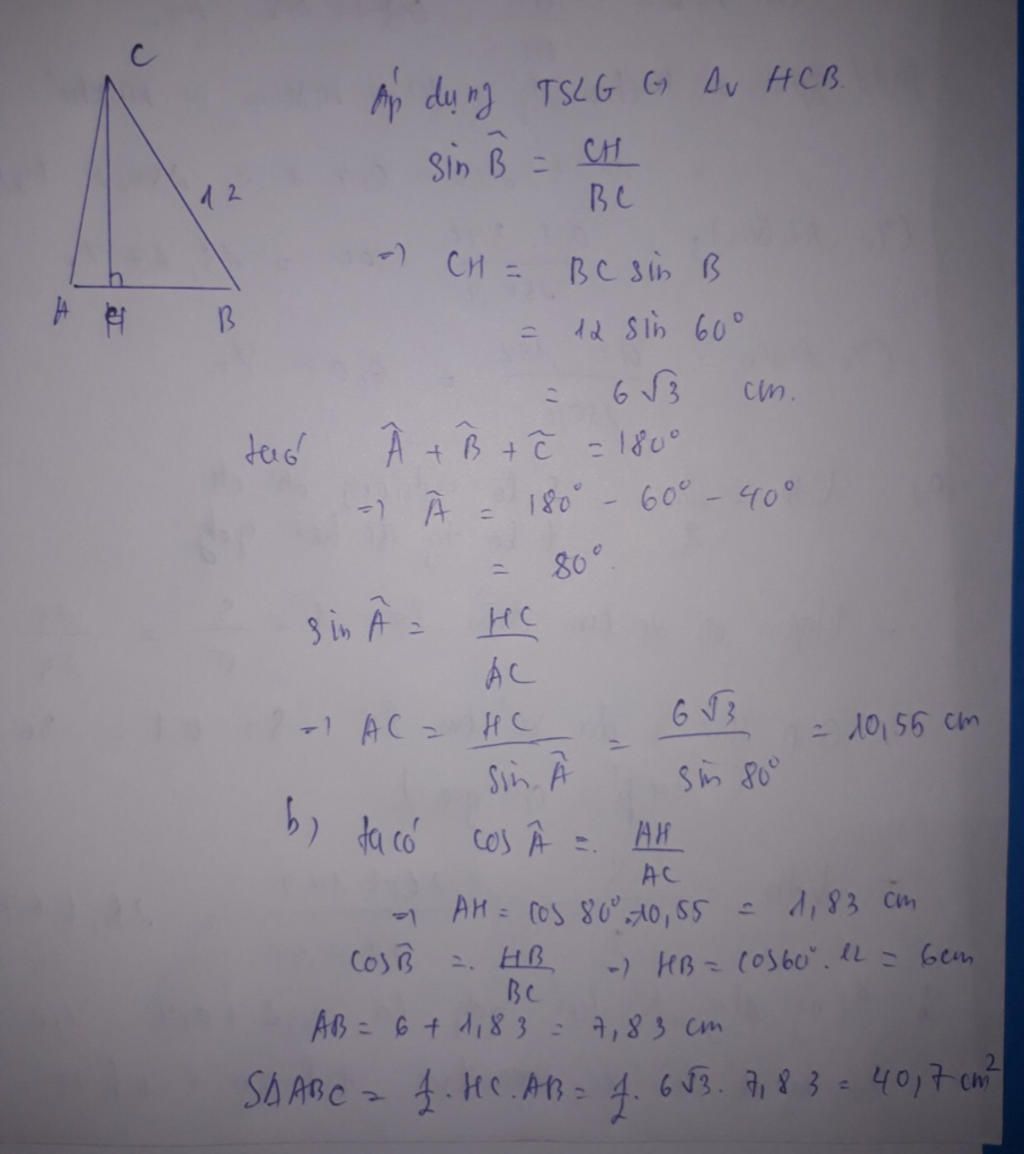 C
12
A H B
Áp dụng TSLG Δv HCB.
sin B̂ = CH/BC
=> CH = BC sin B
= 12 sin 60°
= 6√3 cm.
ta có Â + B̂ + Ĉ = 180°
=> Â = 180° - 60° - 40°
= 80°.
sin Â = HC/AC
=> AC = HC/sin Â = 6√3/sin 80° = 10,55 cm
b) ta có cos Â = AH/AC
=> AH = cos 80°.10,55 = 1,83 cm
cos B̂ = HB/BC => HB = cos60°.12 = 6cm
AB = 6 + 1,83 = 7,83 cm
SΔABC = 1/2.HC.AB = 1/2.6√3.7,83 = 40,7cm²